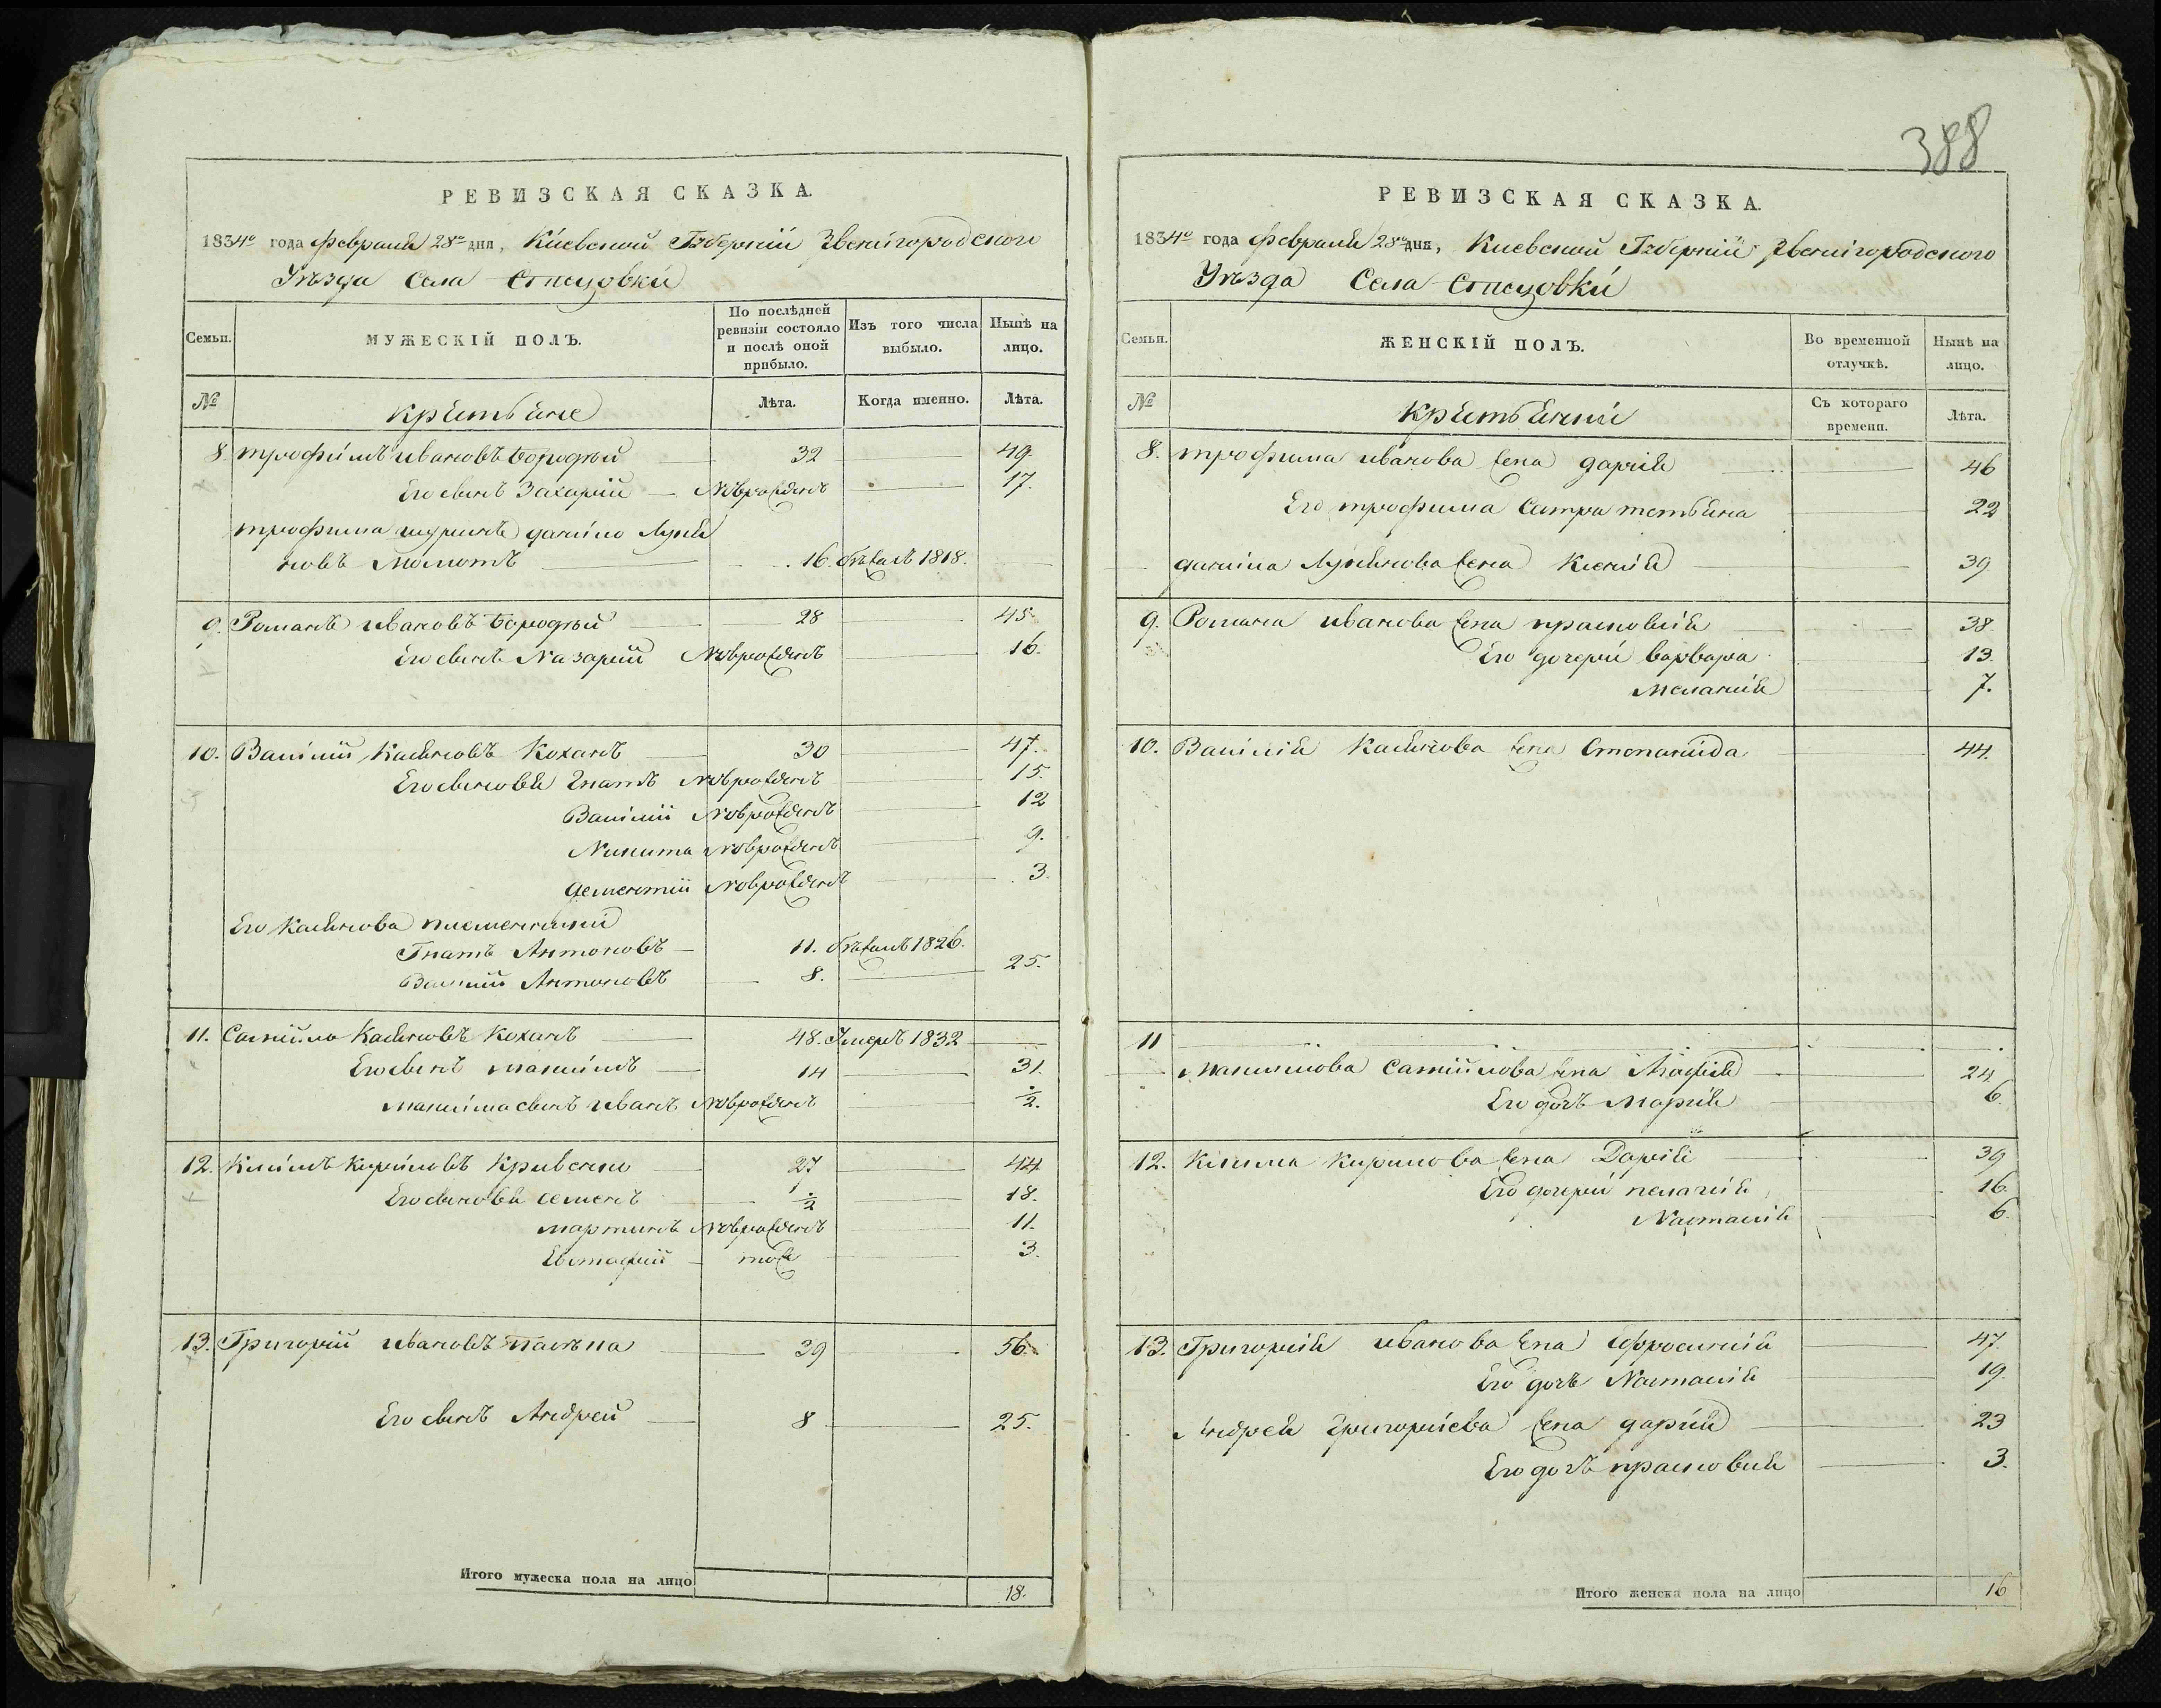 388
РЕВИЗСКАЯ СКАЗКА.
1834го года Февраля 28го дня, Киевской Губернiи Звенигородского
Уезда Села Стецовки
Семьи.
МУЖЕСКIЙ ПОЛЪ.
По послѣдней ревизiи состояло и послѣ оной прибыло.
Изъ того числа выбыло.
Нынѣ на лицо.
№
Крестьяне
Лѣта.
Когда именно.
Лѣта.
8. трофимъ ивановъ Бородѣй 32 49
Его сынъ Захарiй Новрожденъ 17.
трофима шуринъ данило Лукья
новъ Молотъ 16. бежалъ 1818.
9. Романъ ивановъ Бородѣй 28 45.
Его сынъ Назарiй Новрожденъ 16.
10. Василiй Касяновъ Коханъ 30 47.
Его сыновья Гнатъ Новрожденъ 15.
Василiй Новрожденъ 12
Никита Новрожденъ 9.
Дементiй Новрожденъ 3
Его Касянова племянники
Гнатъ Антоновъ 11. бежалъ 1826.
Василiй Антоновъ 8. 25.
11. Самiйло Касяновъ Коханъ 48. Умеръ 1832
Его сынъ Максимъ 14 31.
Максима сынъ иванъ Новрожденъ ½.
12. Климъ Кириловъ Кривенко 27 44
Его сыновья семенъ ½ 18.
мартинъ Новрожденъ 11.
Евстафiй тож 3.
13. Григорiй ивановъ 39 56.
Его сынъ Андрей 8 25.
Итого мужеска пола на лицо 18.
РЕВИЗСКАЯ СКАЗКА.
1834го года Февраля 28го дня, Киевской Губернiи Звенигородского
Уезда Села Стецовки
Семьи.
ЖЕНСКIЙ ПОЛЪ.
Во временной отлучкѣ.
Нынѣ на лицо.
№
Крестьянки
Съ котораго времени.
Лѣта.
8. трофима иванова жена дарiя 46
Его трофима сестра тетьяна 22
данила Лукьянова жена Ксенiя 39
9. Романа иванова жена прасковiя 38
Его дочери варвара 13.
Меланiя 7.
10. Василiя Касянова жена Степанида 44.
11
Максимова Самiйлова жена Агафiя 24
Его дочь Марiя 6.
12. Клима Кирилова жена Дарiя 39
Его дочери пелагiя 16.
Настасiя 6.
13. Григорiя иванова жена Ефросинiя 47.
Его дочь Настасiя 19.
Андрея Григорiева жена дарiя 23
Его дочь прасковiя 3.
Итого женска пола на лицо 16